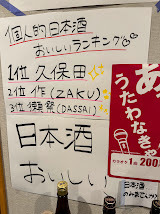 個人的日本酒
おいしいランキング
1位 久保田
2位 作(ZAKU)
3位 獺祭(DASSAI)
日本酒
おいしい
あ
うたわなきゃ
カラオケ1曲200
日本酒